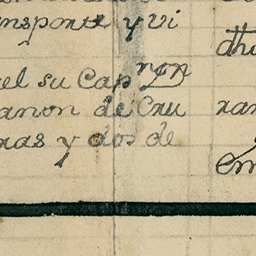 nsporte y vi
el su Capn Dn
anon de Cru
nas y dos de